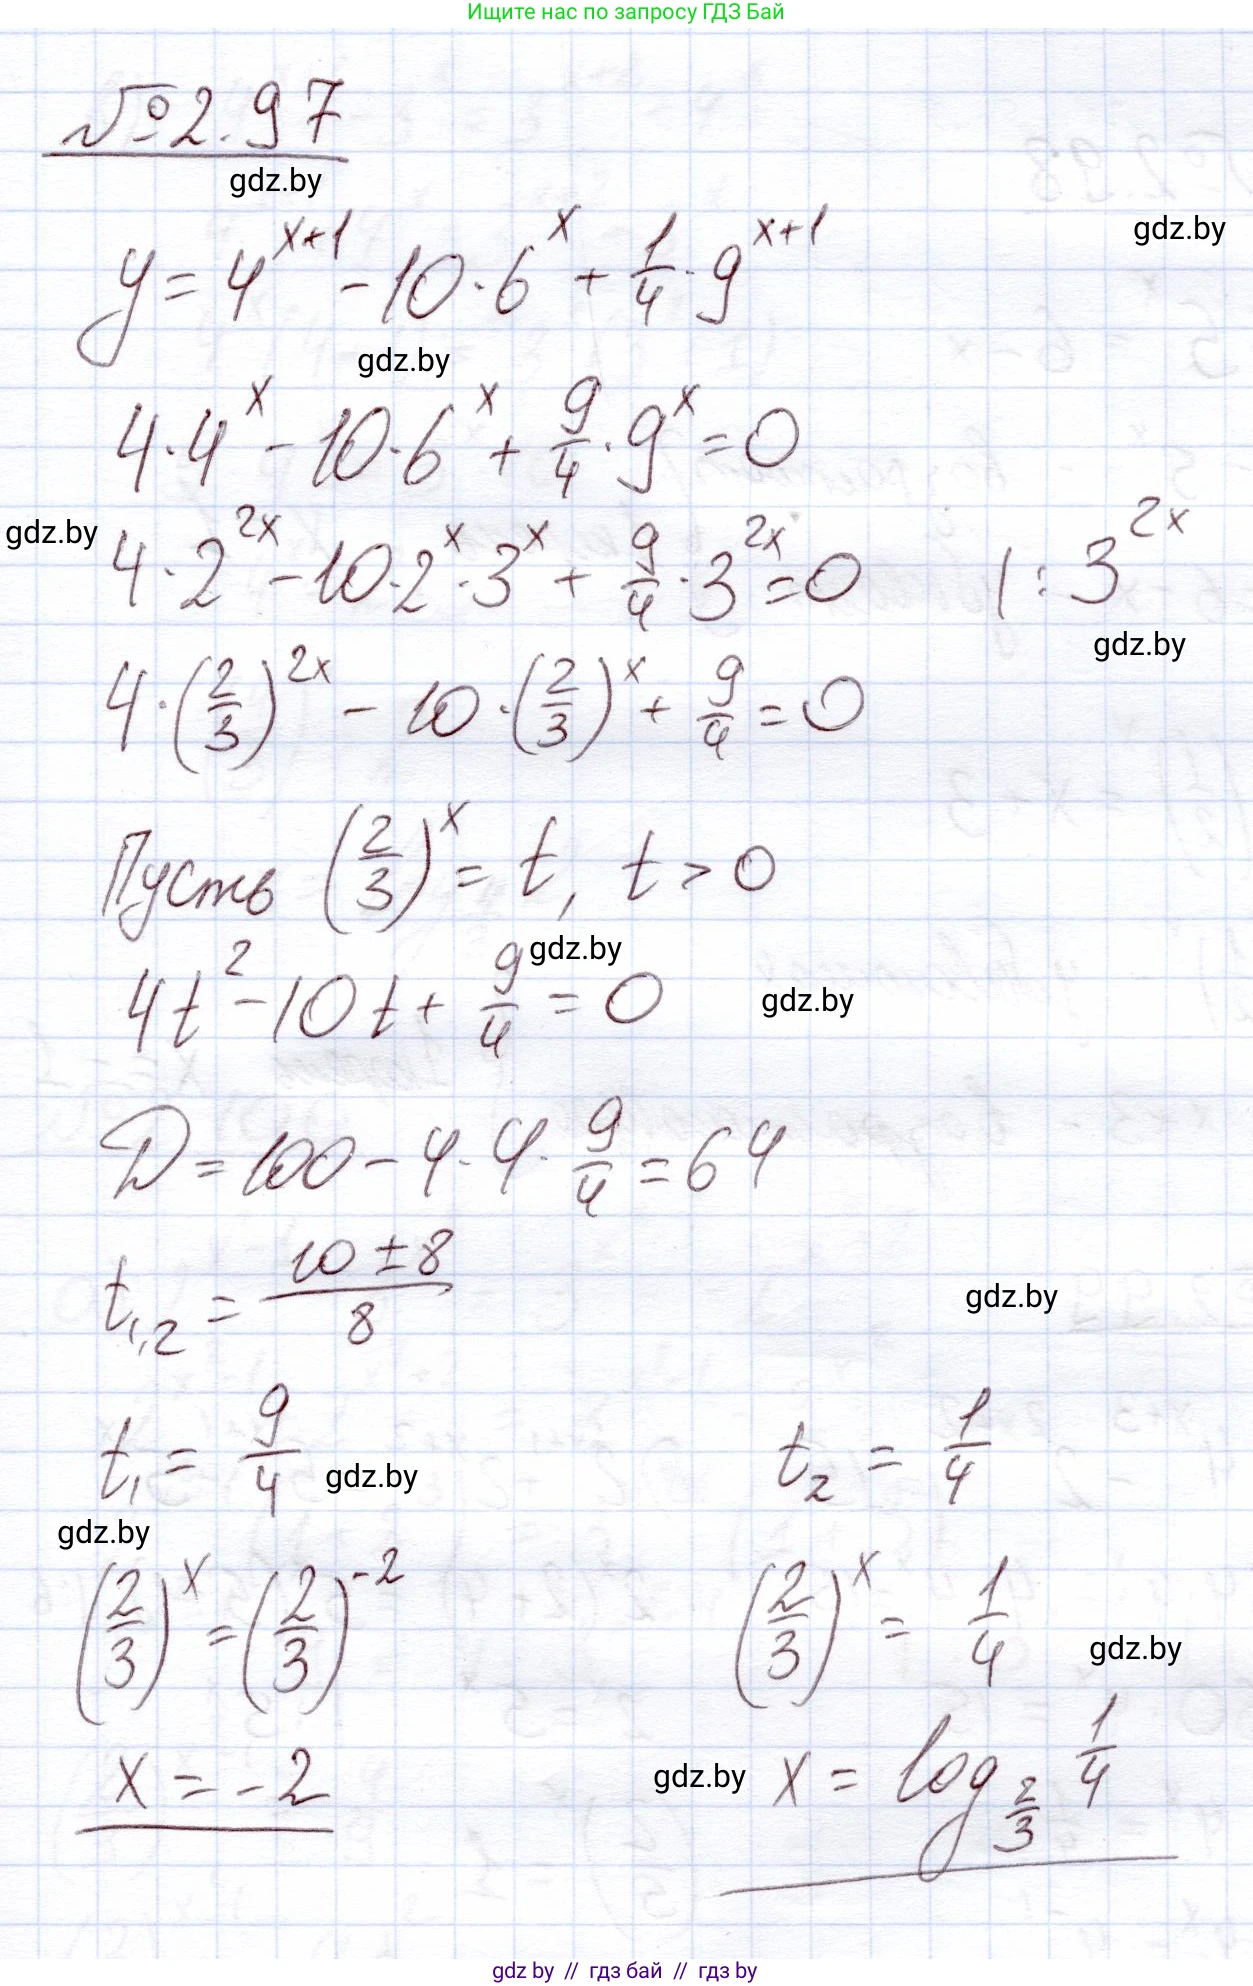 Ищите нас по запросу ГДЗ Бай
№2.97
gdz.by
gdz.by
y = 4^{x+1} - 10·6^x + 1/4·9^{x+1}
gdz.by
4·4^x - 10·6^x + 9/4·9^x = 0
gdz.by
4·2^{2x} - 10·2^x·3^x + 9/4·3^{2x} = 0 | : 3^{2x}
gdz.by
4·(2/3)^{2x} - 10·(2/3)^x + 9/4 = 0
Пусть (2/3)^x = t, t > 0
gdz.by
4t^2 - 10t + 9/4 = 0
gdz.by
D = 100 - 4·4·9/4 = 64
t_{1,2} = (10 ± 8)/8
gdz.by
t_1 = 9/4 t_2 = 1/4
gdz.by
gdz.by
(2/3)^x = (2/3)^{-2} (2/3)^x = 1/4
gdz.by
x = -2 x = log_{2/3} 1/4
gdz.by
gdz by // гдз бай // гдз by